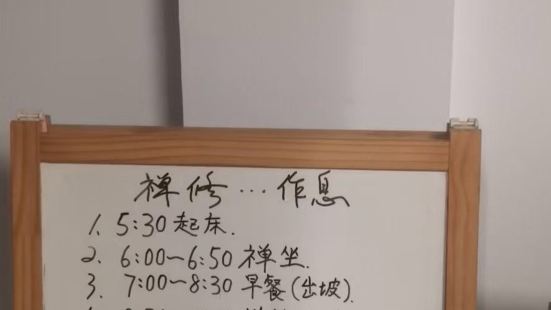 禅修…作息
1. 5:30起床.
2. 6:00~6:50禅坐.
3. 7:00~8:30早餐(出坡)